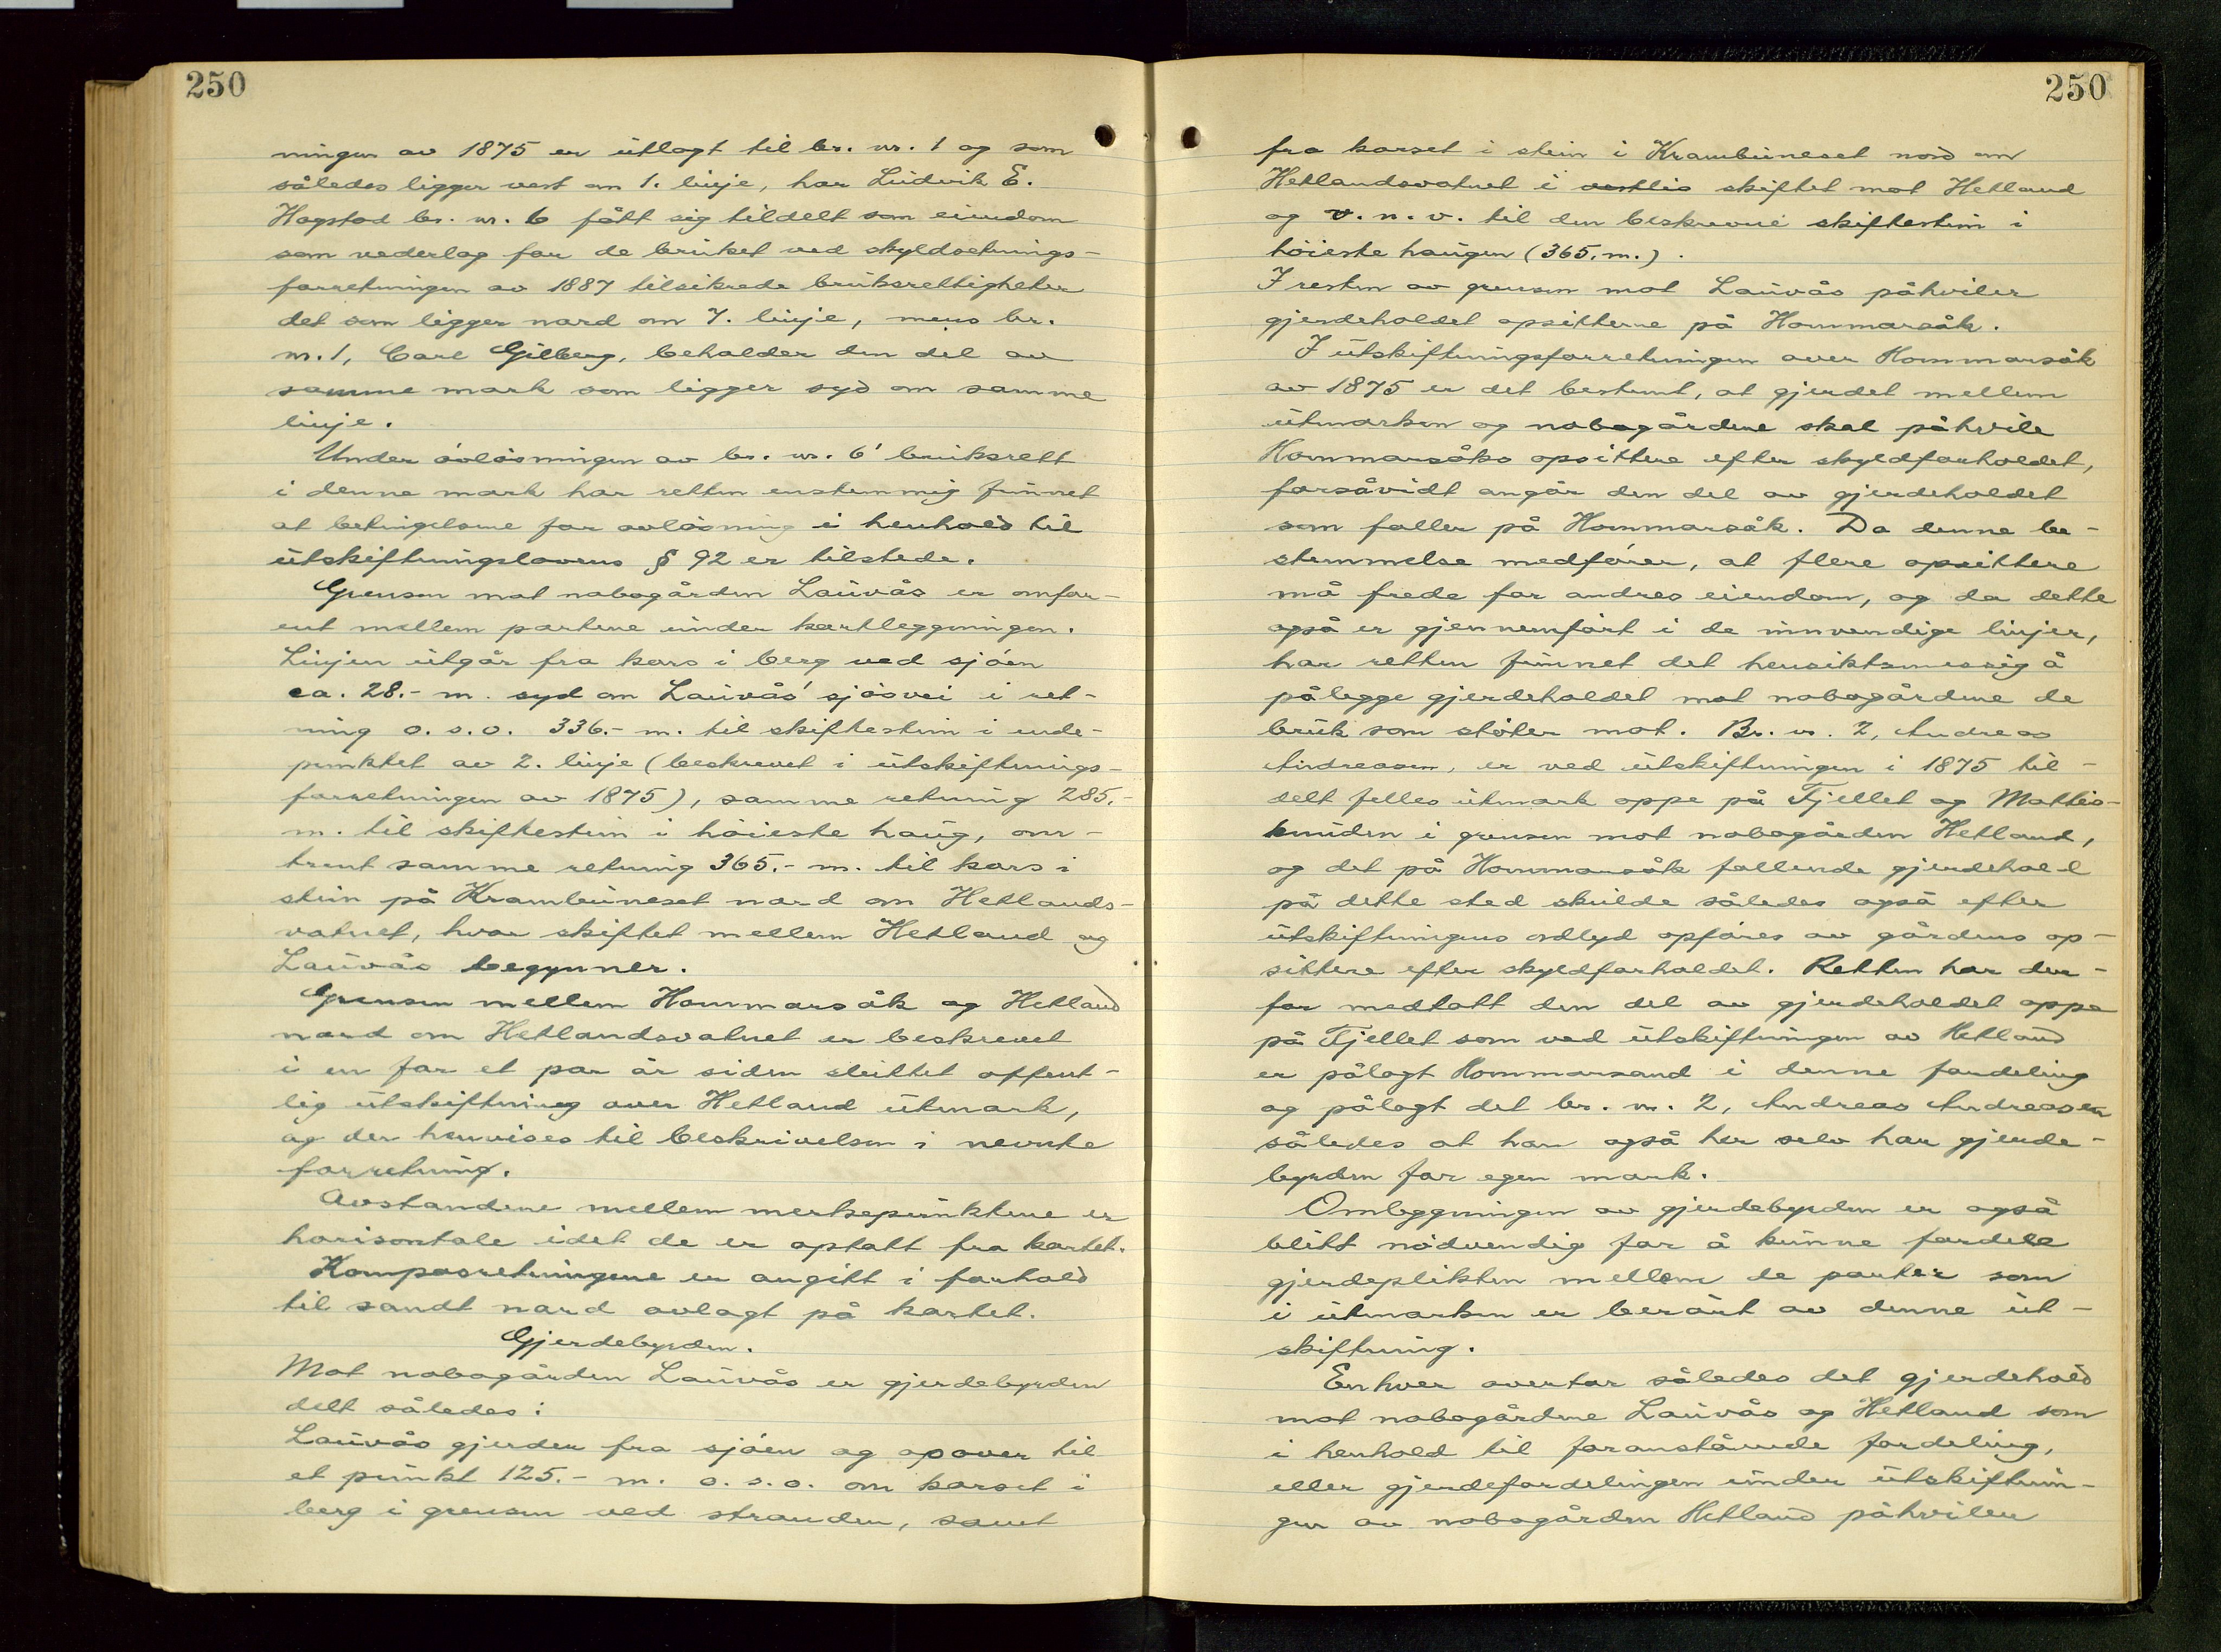 250
ningen av 1875 er utlagt til br. nr. 1 og som
således ligger vest om 1. linje, har Ludvik E.
Hagstad br. nr. 6 fått sig tildelt som eiendom
som vederlag for de bruket ved skyldsetnings-
forretningen av 1887 tilsikrede bruksrettigheter
det som ligger nord om 7. linje, mens br.
nr. 1, Carl Gilberg, beholder den del av
samme mark som ligger syd om samme
linje.
Under avløsningen av br. nr. 6' bruksrett
i denne mark har retten enstemmig funnet
at betingelsene for avløsning i henhold til
utskiftningslovens § 92 er tilstede.
Grensen mot nabogården Lauvås er omfor-
ent mellem partene under kartleggningen.
Linjen utgår fra kors i berg ved sjøen
ca. 28.- m. syd om Lauvås' sjøsvei i ret-
ning o. s. o. 336.- m. til skiftestein i ende-
punktet av 2. linje (beskrevet i utskiftnings-
forretningen av 1875), samme retning 285.-
m. til skiftestein i høieste haug, om-
trent samme retning 365.- m. til kors i
stein på Krambuneset nord om Hetlands-
vatnet, hvor skiftet mellem Hetland og
Lauvås begynner.
Grensen mellem Hommarsåk og Hetland
nord om Hetlandsvatnet er beskrevet
i en for et par år siden sluttet offent-
lig utskiftning over Hetland utmark,
og der henvises til beskrivelsen i nevnte
forretning.
Avstandene mellem merkepunktene er
horisontale idet de er optatt fra kartet.
Kompasretningene er angitt i forhold
til sandt nord avlagt på kartet.
Gjerdebyrden.
Mot nabogården Lauvås er gjerdebyrden
delt således:
Lauvås gjerder fra sjøen og opover til
et punkt 125.- m. o. s. o. om korset i
berg i grensen ved stranden, samt
250
fra korset i stein i Krambuneset nord om
Hetlandsvatnet i vestlis skiftet mot Hetland
og v. n. v. til den beskrevne skiftestein i
høieste haugen (365. m.).
I resten av grensen mot Lauvås påhviler
gjerdeholdet opsitterne på Hommarsåk.
I utskiftningsforretningen over Hommarsåk
av 1875 er det bestemt, at gjerdet mellem
utmarken og nabogårdene skal påhvile
Hommarsåks opsittere efter skyldforholdet,
forsåvidt angår den del av gjerdeholdet
som faller på Hommarsåk. Da denne be-
stemmelse medfører, at flere opsittere
må frede for andres eiendom, og da dette
også er gjennemført i de innvendige linjer,
har retten funnet det hensiktsmessig å
pålegge gjerdeholdet mot nabogårdene de
bruk som støter mot. Br. nr. 2, Andreas
Andreasen, er ved utskiftningen i 1875 til-
delt felles utmark oppe på Fjellet og Mattis-
knuden i grensen mot nabogården Hetland,
og det på Hommarsåk fallende gjerdehold
på dette sted skulde således også efter
utskiftningens ordlyd opføres av gårdens op-
sittere efter skyldforholdet. Retten har der-
for medtatt den del av gjerdeholdet oppe
på Fjellet som ved utskiftningen av Hetland
er pålagt Hommarsand i denne fordeling
og pålagt det br. nr. 2, Andreas Andreasen
således at han også her selv har gjerde-
byrden for egen mark.
Omleggningen av gjerdebyrden er også
blitt nødvendig for å kunne fordele
gjerdeplikten mellem de parter som
i utmarken er berørt av denne ut-
skiftning.
Enhver overtar således det gjerdehold
mot nabogårdene Lauvås og Hetland som
i henhold til foranstående fordeling,
eller gjerdefordelingen under utskiftnin-
gen av nabogården Hetland påhviler